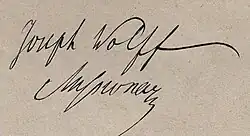 Joseph Wolff
Missionary